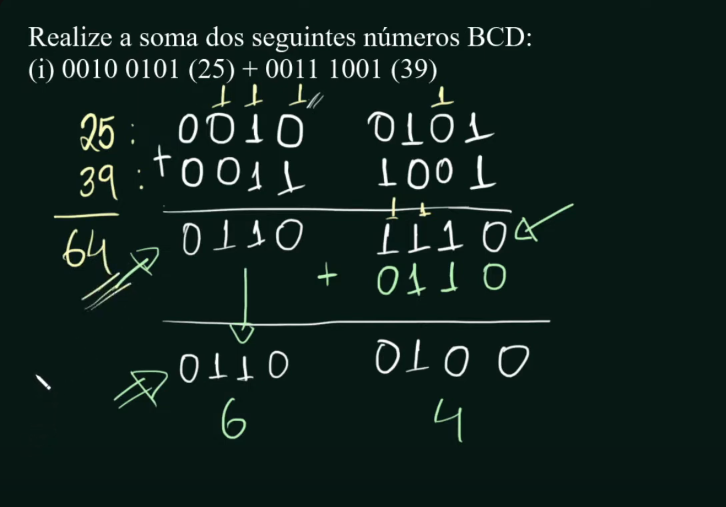 Realize a soma dos seguintes números BCD:
(i) 0010 0101 (25) + 0011 1001 (39)
1 1 1 1
25 : 0010 0101
39 : +0011 1001
1 1
64 0110 1110
+ 0110
0110 0100
6 4